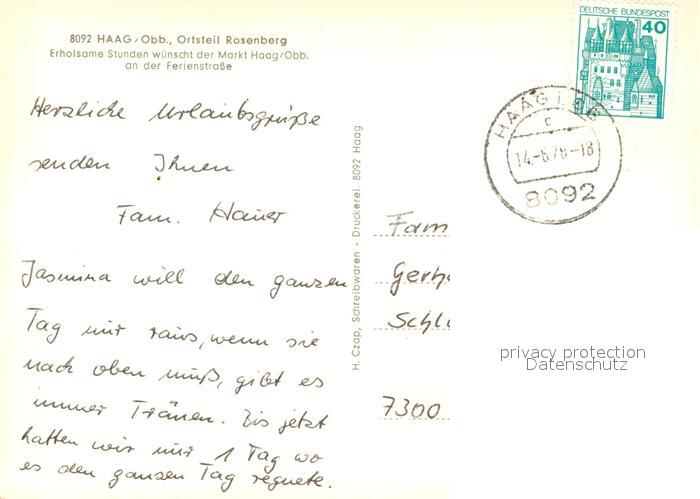 8092 HAAG/Obb., Ortsteil Rosenberg
Erholsame Stunden wünscht der Markt Haag/Obb.
an der Ferienstraße
DEUTSCHE BUNDESPOST
40
HAAG
c
14.-6.78-18
8092
Herzliche Urlaubsgrüße
senden Ihnen
Fam. Hauer
Jasmina will den ganzen
Tag nur raus, wenn sie
nach oben muß, gibt es
immer Tränen. Bis jetzt
hatten wir nur 1 Tag wo
es den ganzen Tag regnete.
H. Czap, Schreibwaren - Druckerei. 8092 Haag
Fam
Gerh
Schl
7300
privacy protection
Datenschutz